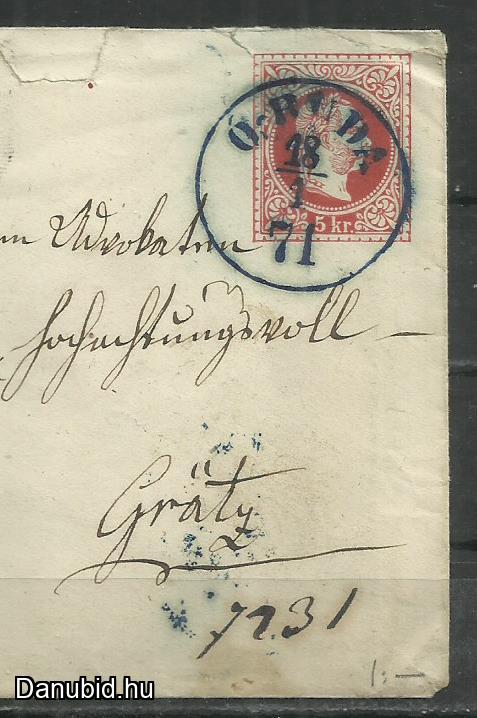 Ó-BUDA
18
1
71
5 kr.
Advokaten
hochachtungsvoll —
Grätz
7231
1:—
Danubid.hu